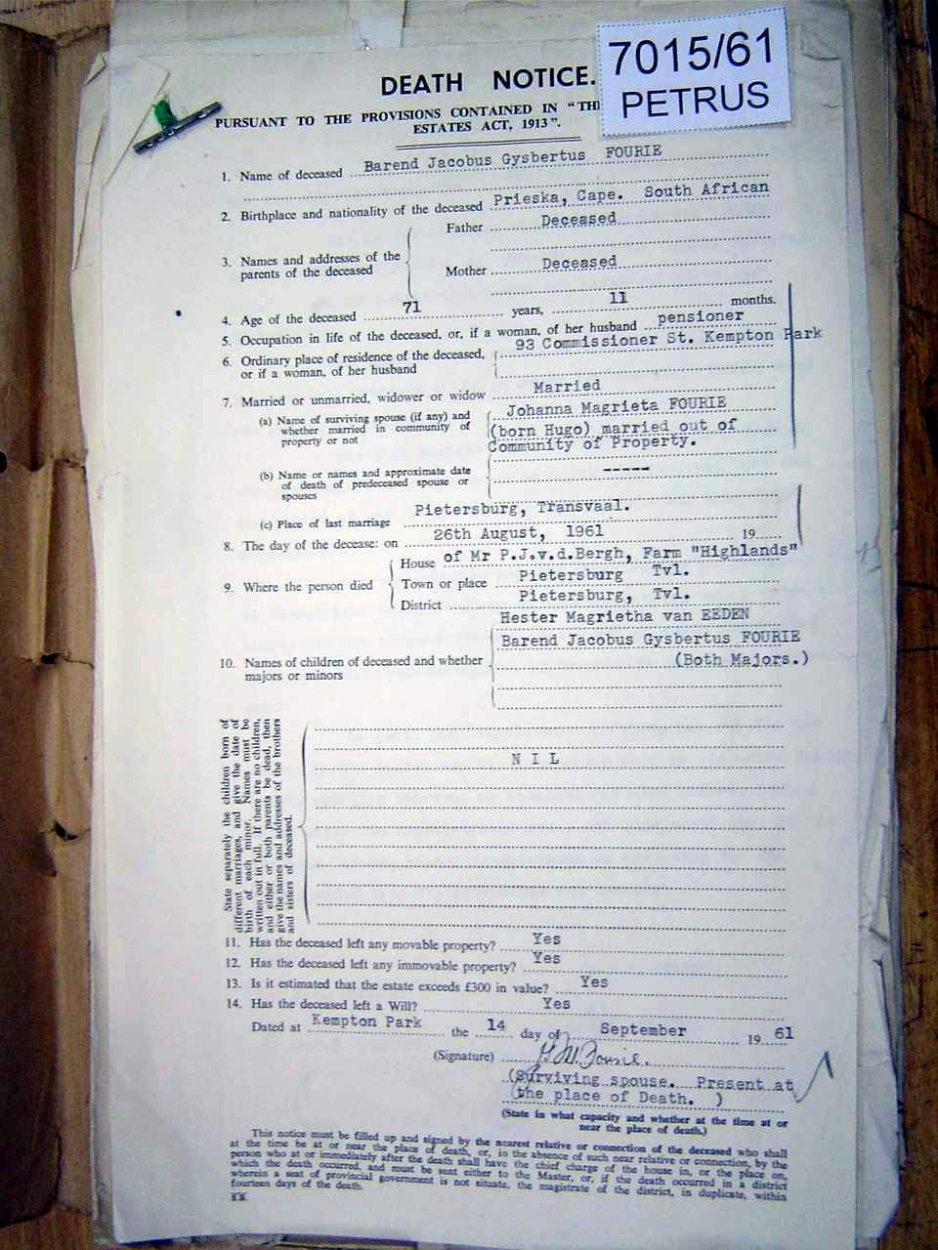 7015/61
PETRUS
DEATH NOTICE.
PURSUANT TO THE PROVISIONS CONTAINED IN "TH
ESTATES ACT, 1913".
1. Name of deceased Barend Jacobus Gysbertus FOURIE
2. Birthplace and nationality of the deceased Prieska, Cape. South African
3. Names and addresses of the parents of the deceased
Father Deceased
Mother Deceased
4. Age of the deceased 71 years, 11 months.
5. Occupation in life of the deceased, or, if a woman, of her husband pensioner
6. Ordinary place of residence of the deceased, 93 Commissioner St. Kempton Park
or if a woman, of her husband
7. Married or unmarried, widower or widow Married
(a) Name of surviving spouse (if any) and Johanna Magrieta FOURIE
whether married in community of (born Hugo) married out of
property or not Community of Property.
(b) Name or names and approximate date -----
of death of predeceased spouse or
spouses
(c) Place of last marriage Pietersburg, Transvaal.
8. The day of the decease: on 26th August, 1961 19
9. Where the person died
House of Mr P.J.v.d.Bergh, Farm "Highlands"
Town or place Pietersburg Tvl.
District Pietersburg, Tvl.
Hester Magrietha van EEDEN
Barend Jacobus Gysbertus FOURIE
10. Names of children of deceased and whether (Both Majors.)
majors or minors
State separately the children born of
different marriages, and give the date of
birth of each minor. Names must be
written out in full. If there are no children,
and either or both parents be dead, then
give the names and addresses of the brothers
and sisters of deceased.
N I L
11. Has the deceased left any movable property? Yes
12. Has the deceased left any immovable property? Yes
13. Is it estimated that the estate exceeds £300 in value? Yes
14. Has the deceased left a Will? Yes
Dated at Kempton Park the 14 day of September 19 61
(Signature) Fourie.
(Surviving spouse. Present at
the place of Death. )
(State in what capacity and whether at the time at or
near the place of death.)
This notice must be filled up and signed by the nearest relative or connection of the deceased who shall
at the time be at or near the place of death, or, in the absence of such near relative or connection, by the
person who at or immediately after the death shall have the chief charge of the house in, or the place on,
which the death occurred, and must be sent either to the Master, or, if the death occurred in a district
wherein a seat of provincial government is not situate, the magistrate of the district, in duplicate, within
fourteen days of the death.